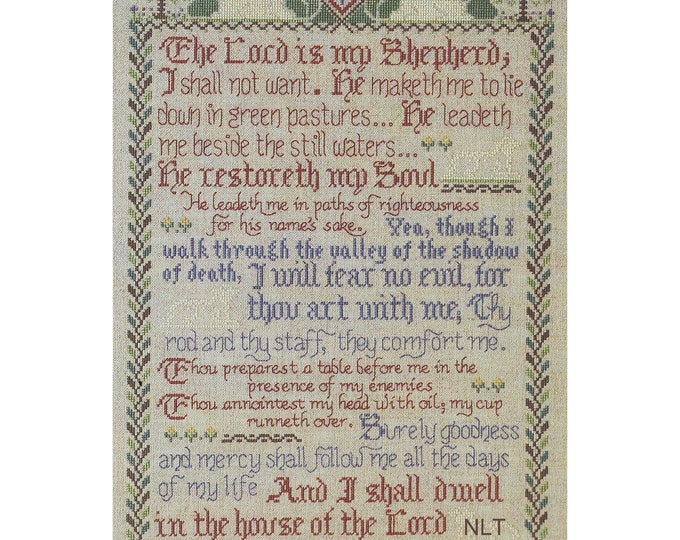 The Lord is my Shepherd;
I shall not want. He maketh me to lie
down in green pastures... He leadeth
me beside the still waters...
He restoreth my Soul
He leadeth me in paths of righteousness
for his name's sake. Yea, though I
walk through the valley of the shadow
of death, I will fear no evil, for
thou art with me, Thy
rod and thy staff, they comfort me.
Thou preparest a table before me in the
presence of my enemies
Thou annointest my head with oil; my cup
runneth over. Surely goodness
and mercy shall follow me all the days
of my life And I shall dwell
in the house of the Lord NLT